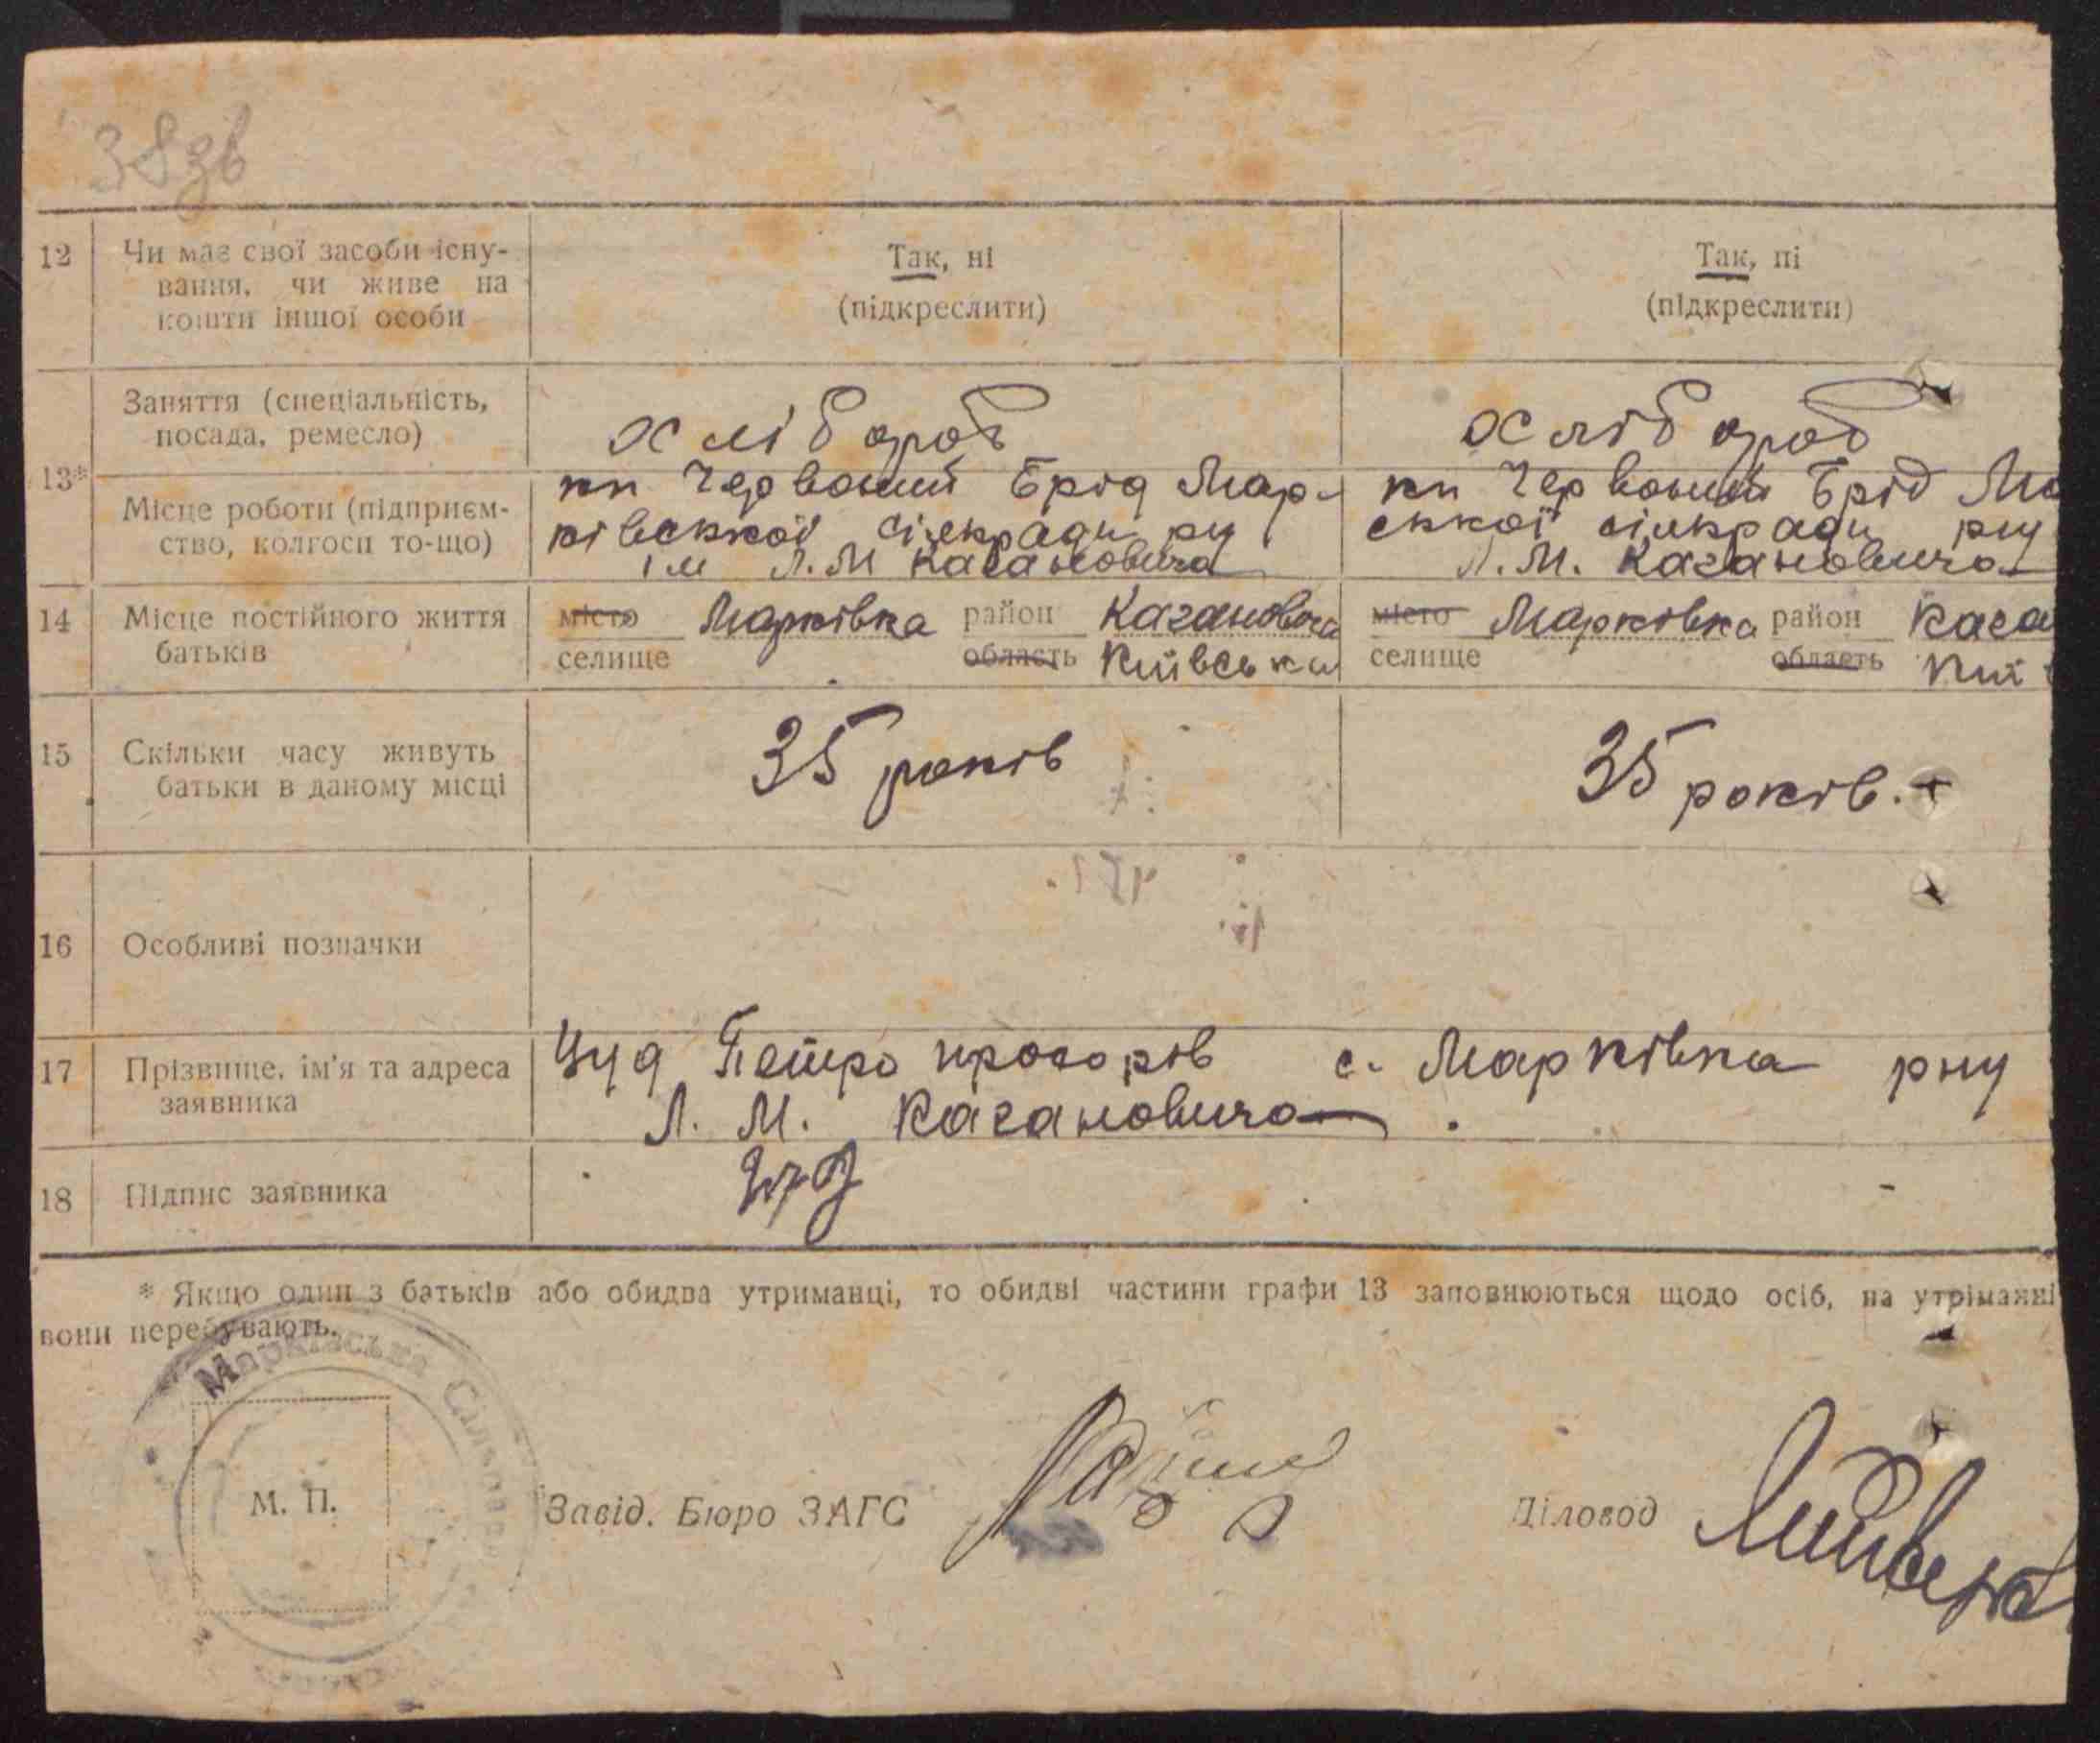 38зв
12 Чи має свої засоби існу- Так, ні Так, ні
вання, чи живе на (підкреслити) (підкреслити)
кошти іншої особи
Заняття (спеціальність, хлібороб хлібороб
посада, ремесло)
13* кп Червоний Брід Мар- кп Червоний Брід Ма
Місце роботи (підприєм- ківської сількради рну ської сількради рну
ство, колгосп то-що) ім Л.М Кагановича Л.М. Кагановича
14 Місце постійного життя місто Марківка район Кагановича місто Марківка район Кага
батьків селище область Київська селище область Киї
15 Скільки часу живуть 35 років 35 років.
батьки в даному місці
16 Особливі позначки
17 Прізвище, ім'я та адреса Цуд Петро прохорів с. Марківка рну
заявника Л. М. Кагановича.
18 Підпис заявника
* Якщо один з батьків або обидва утриманці, то обидві частини графи 13 заповнюються щодо осіб, на утриманні
вони перебувають.
Марківська Сільрада
М. П. Завід. Бюро ЗАГС Діловод